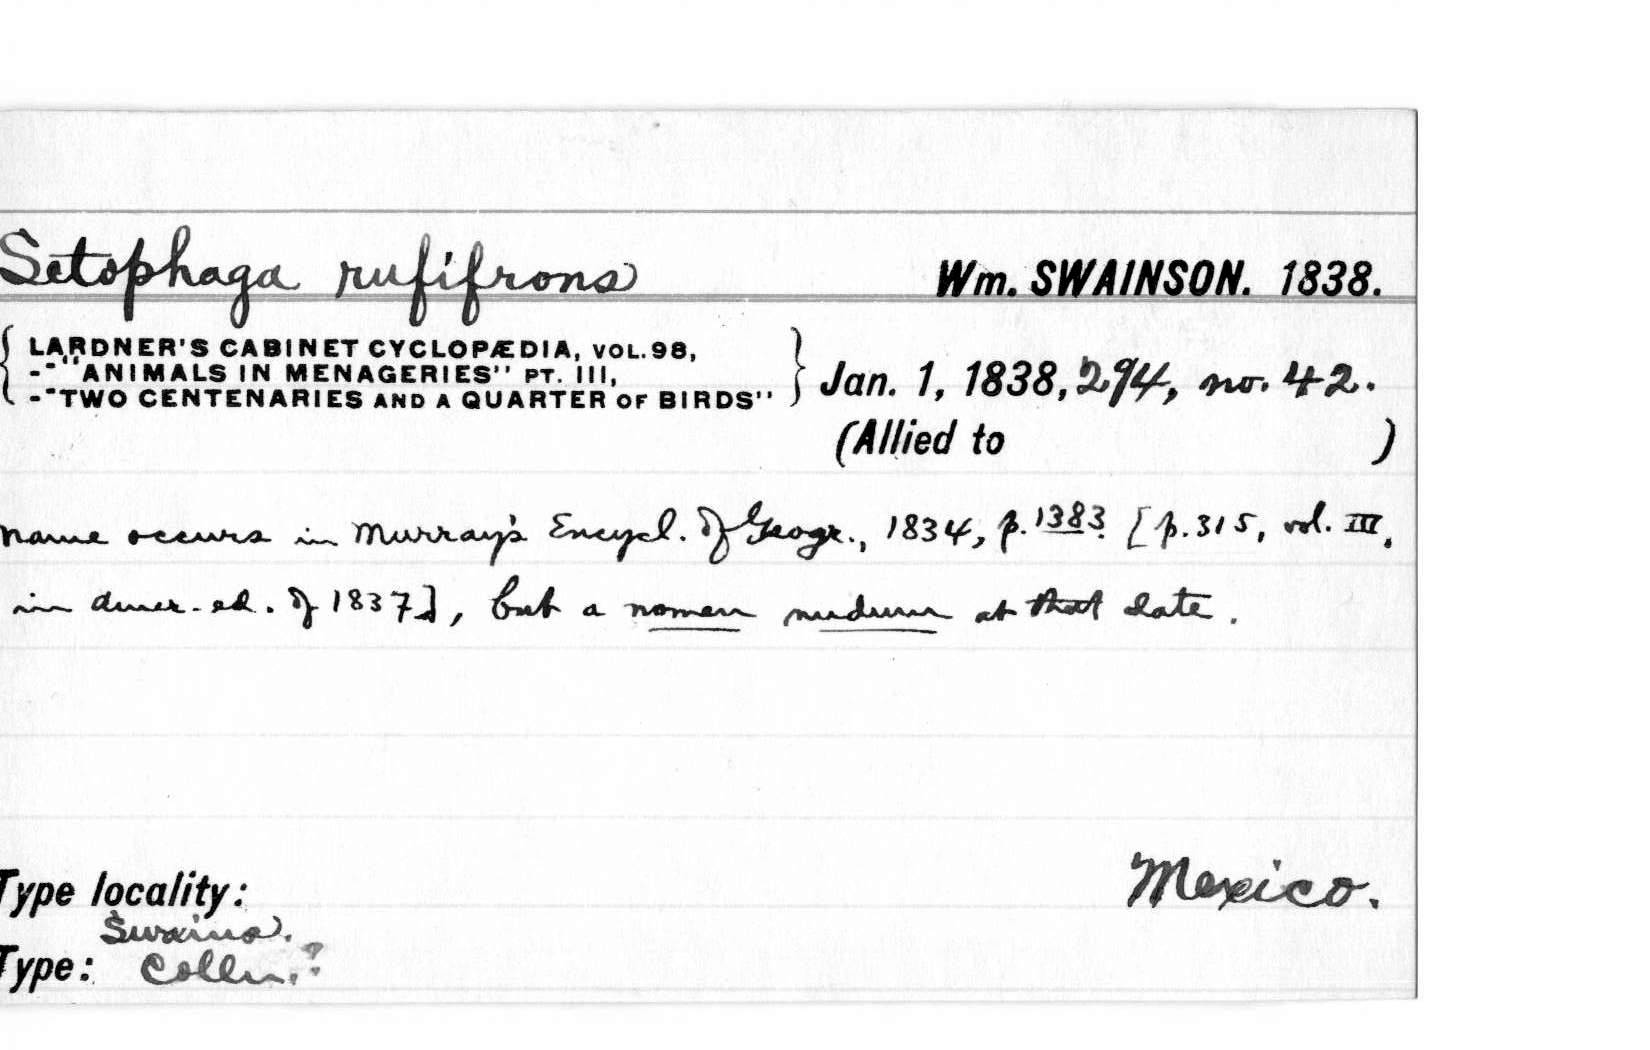 Setophaga rufifrons Wm. SWAINSON. 1838.
LARDNER'S CABINET CYCLOPÆDIA, VOL.98,
-"ANIMALS IN MENAGERIES" PT. III,
-"TWO CENTENARIES AND A QUARTER OF BIRDS"
Jan. 1, 1838, 294, no. 42.
(Allied to )
name occurs in Murray's Encycl. of Geogr., 1834, p. 1383 [p. 315, vol. III,
in Amer. ed. of 1837], but a nomen nudum at that date.
Type locality: Mexico.
Swains.
Type: Colln.?